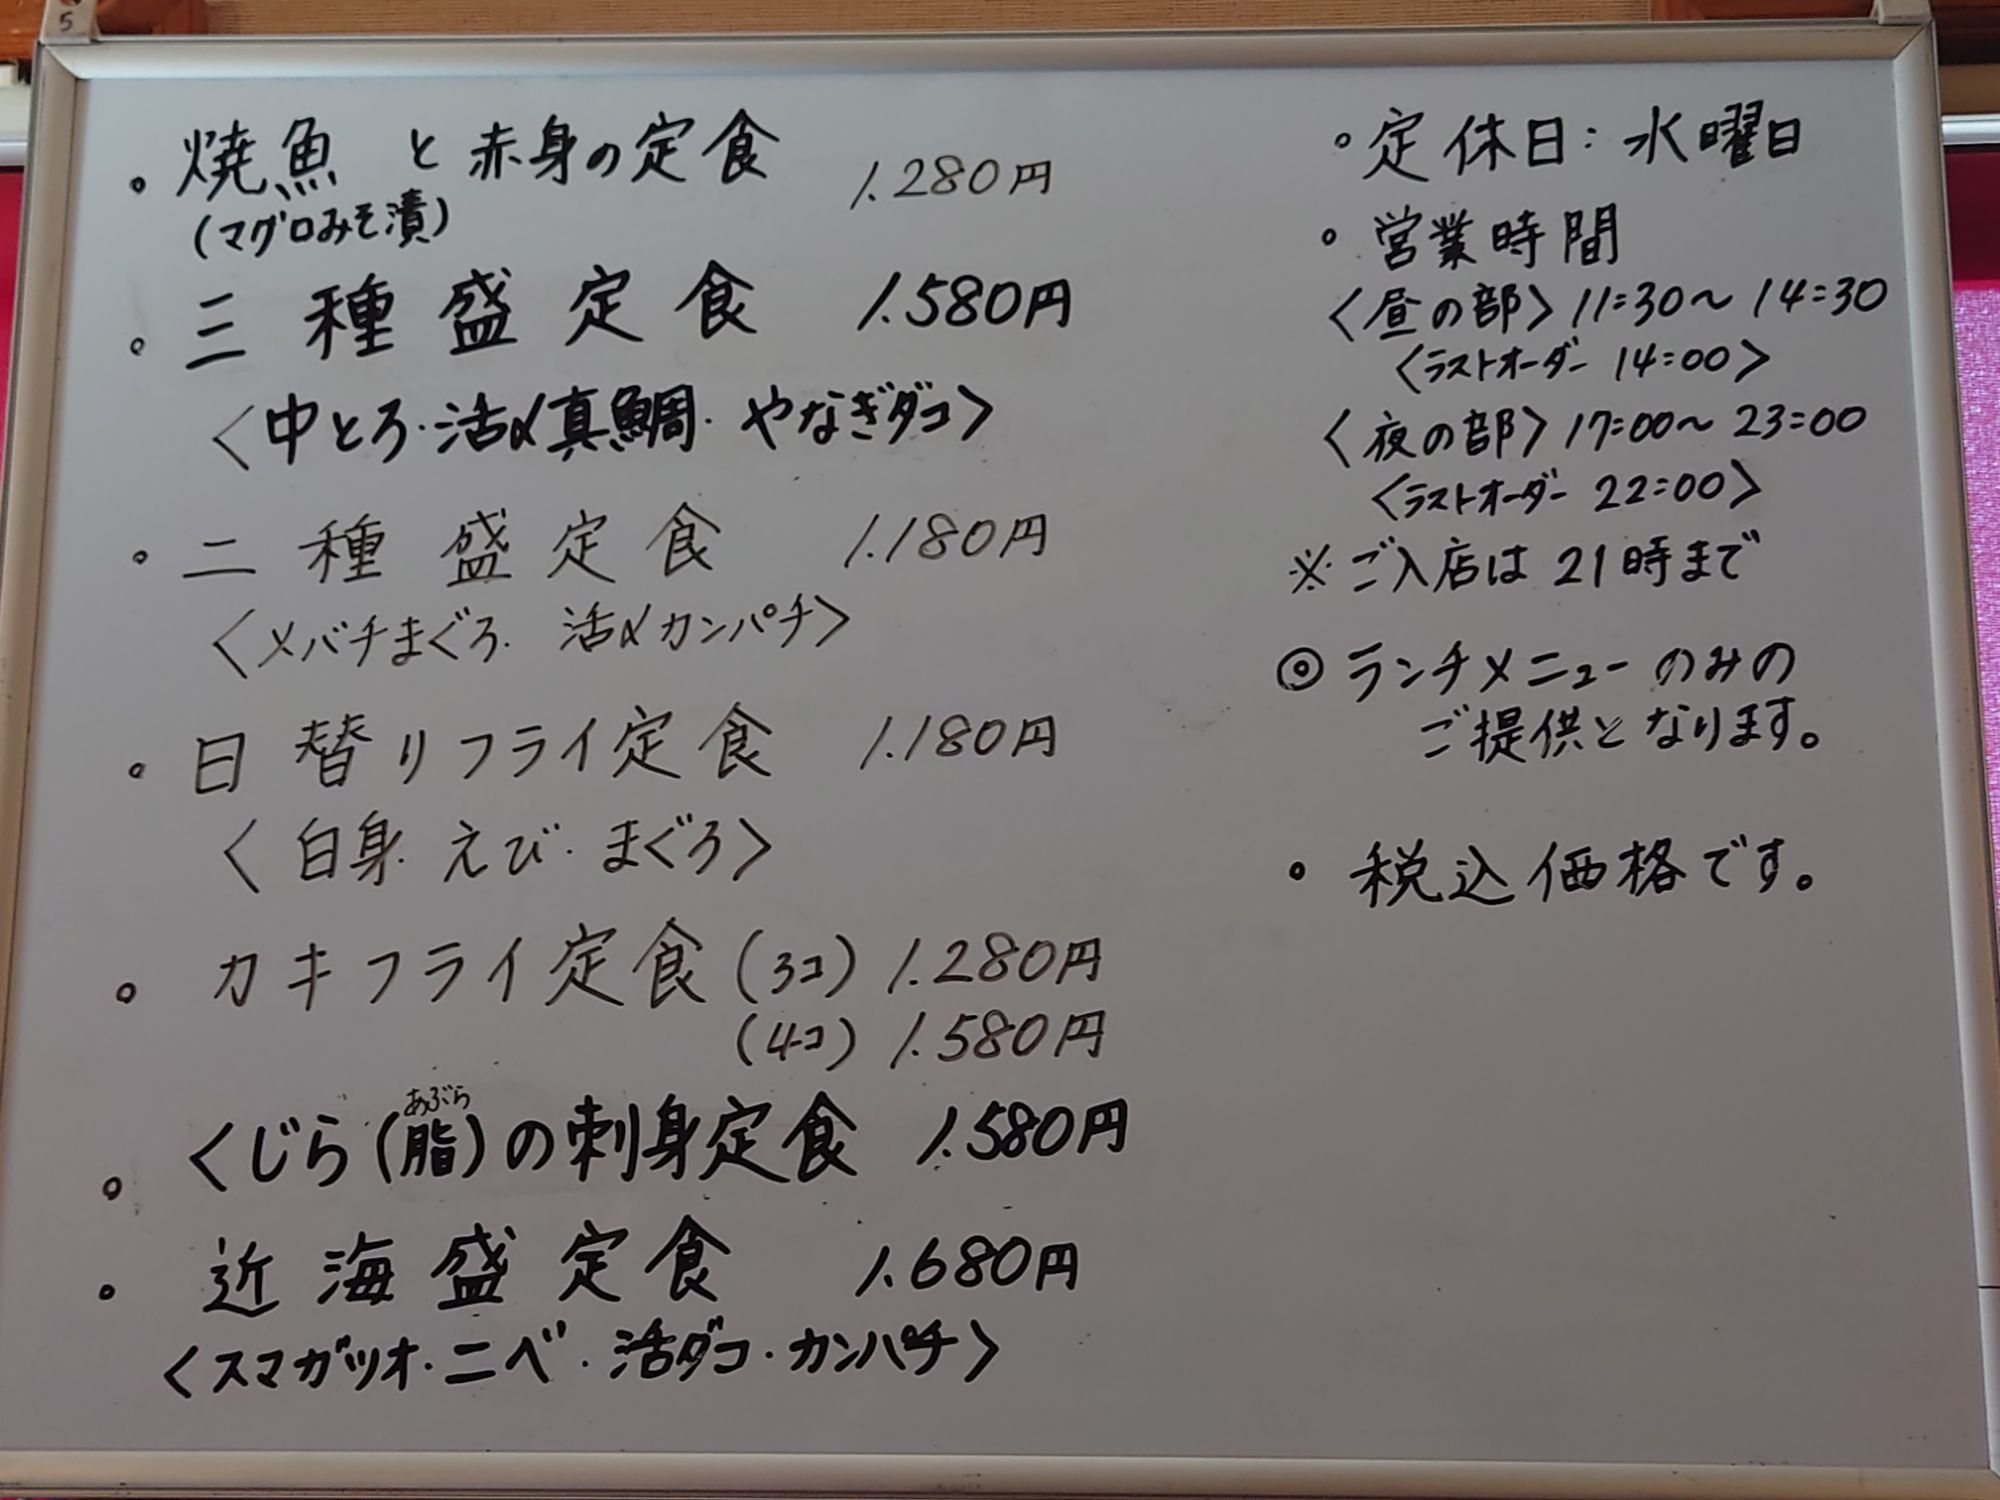 5
。焼魚 と 赤身の定食 1.280円
(マグロみそ漬)
。三種盛定食 1.580円
〈中とろ・活〆真鯛・やなぎダコ〉
。二種盛定食 1.180円
〈メバチまぐろ・活〆カンパチ〉
。日替りフライ定食 1.180円
〈白身・えび・まぐろ〉
。カキフライ定食(3コ) 1.280円
(4コ) 1.580円
あぶら
。くじら(脂)の刺身定食 1.580円
。近海盛定食 1.680円
〈スマガツオ・ニベ・活ダコ・カンパチ〉
。定休日:水曜日
。営業時間
〈昼の部〉11:30〜14:30
〈ラストオーダー 14:00〉
〈夜の部〉17:00〜23:00
〈ラストオーダー 22:00〉
※ご入店は21時まで
◎ランチメニューのみの
ご提供となります。
。税込価格です。